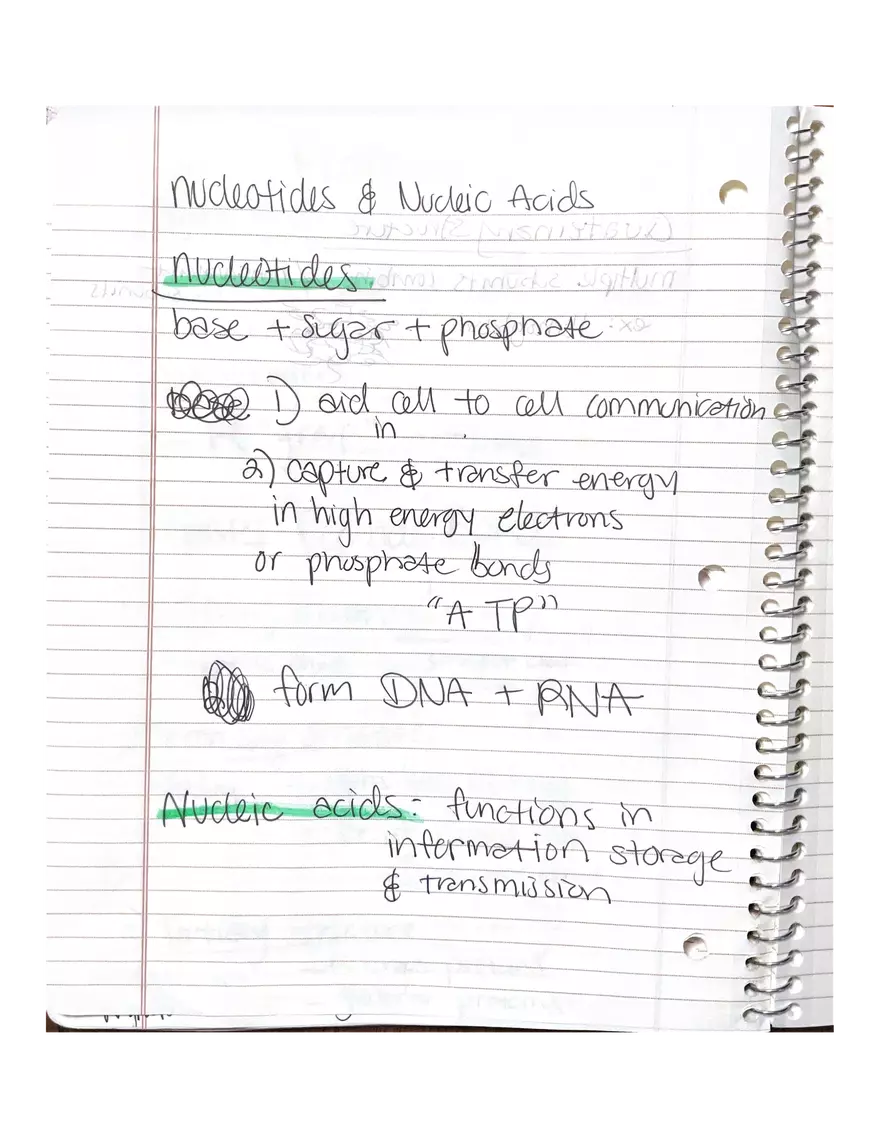 Nucleotides & Nucleic Acids
Nucleotides
base + sugar + phosphate
1) aid cell to cell communication
in
2) capture & transfer energy
in high energy electrons
or phosphate bonds
"ATP"
form DNA + RNA
Nucleic acids: functions in
information storage
& transmission